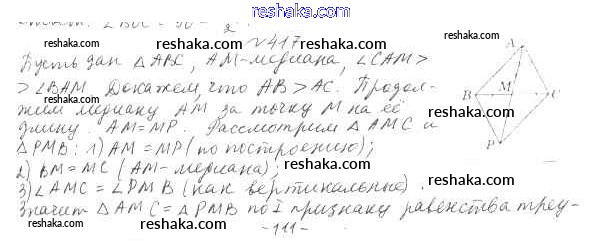 reshaka.com
reshaka.com № 417 reshaka.com
Пусть дан △ ABC, AM-медиана, ∠CAM >
> ∠BAM. Докажем, что AB > AC. Продол-
жим медиану AM за точку M на её
длину. AM = MP. Рассмотрим △ AMC и
△ PMB: 1) AM = MP (по построению);
2) BM = MC (AM-медиана);
3) ∠AMC = ∠PMB (как вертикальные).
Значит △ AMC = △ PMB по I признаку равенства треу-
-111-
A
B M C
P
reshaka.com
reshaka.com
reshaka.com
reshaka.com
reshaka.com
reshaka.com
reshaka.com
reshaka.com